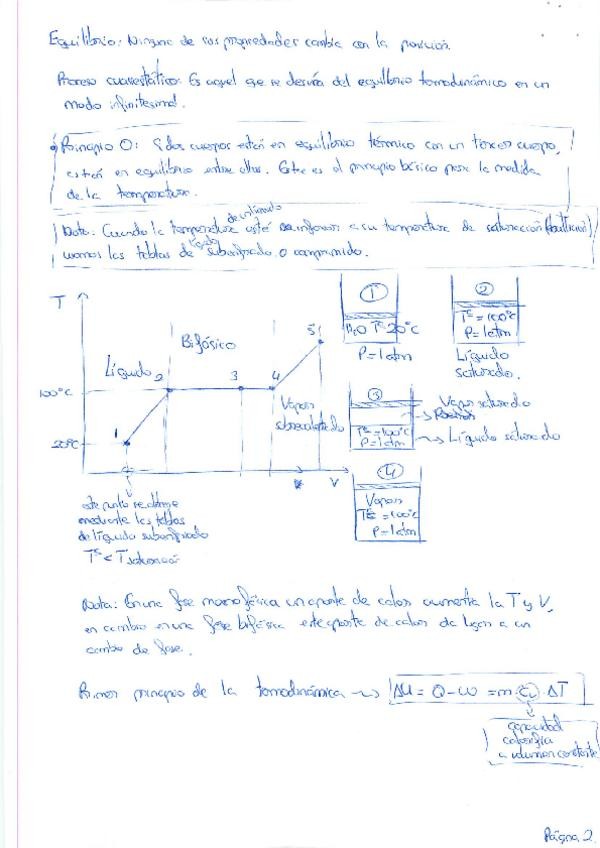 Equilibrio: Ninguna de sus propiedades cambia con la posición.
Proceso cuasiestático: Es aquel que se desvía del equilibrio termodinámico en un
modo infinitesimal.
Principio 0: Si dos cuerpos están en equilibrio térmico con un tercer cuerpo,
están en equilibrio entre ellos. Este es el principio básico para la medida
de la temperatura.
de un líquido
Nota: Cuando la temperatura esté inferior a su temperatura de saturación (ebullición)
usamos las tablas de líquido subenfriado o comprimido.
T
Bifásico
Líquido
1
2
3
4
5
100°C
20°C
Vapor
sobrecalentado
V
este punto se obtiene
mediante las tablas
de líquido subenfriado
Tª < T saturación
1
H2O Tª 20°C
P=1atm
2
Tª=100°C
P=1atm
Líquido
saturado.
3
Vapor saturado
Tª=100°C
P=1atm
Líquido saturado
4
Vapor
Tª=100°C
P=1atm
Nota: En una fase monofásica un aporte de calor aumenta la T y V,
en cambio en una fase bifásica este aporte de calor da lugar a un
cambio de fase.
Primer principio de la termodinámica ΔU = Q-W = m · ΔT
capacidad
calorífica
a volumen constante
Página 2